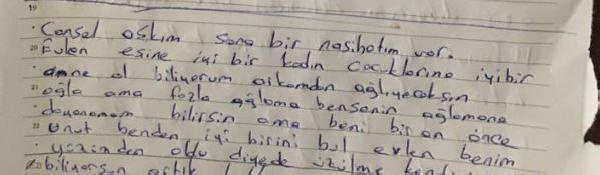 19
Cansel aşkım sana bir nasihatım var.
20 Evlen eşine iyi bir kadın çocuklarına iyi bir
anne ol biliyorum arkamdan ağlıyacaksın
21 ağla ama fazla ağlama ben senin ağlamana
dayanamam bilirsin ama beni bir an önce
22 Unut benden iyi birini bul evlen benim
yüzünden oldu diyede üzülme
biliyorsun artık